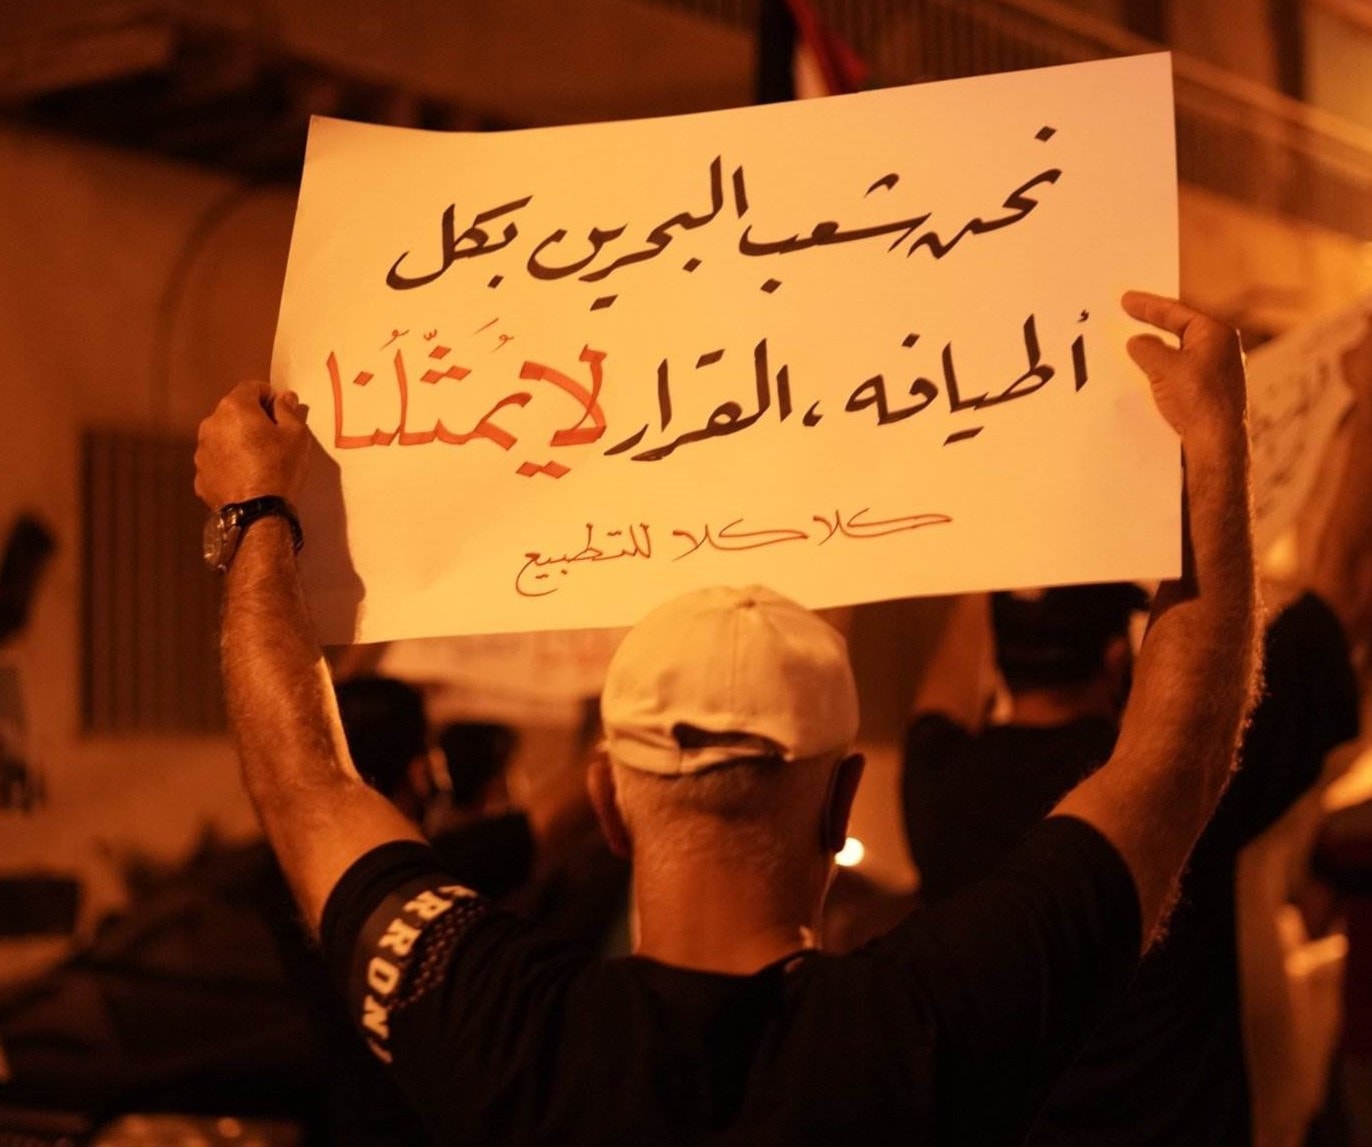 نحن شعب البحرين بكل
أطيافه، القرار لا يُمَثّلُنا
كلا كلا للتطبيع